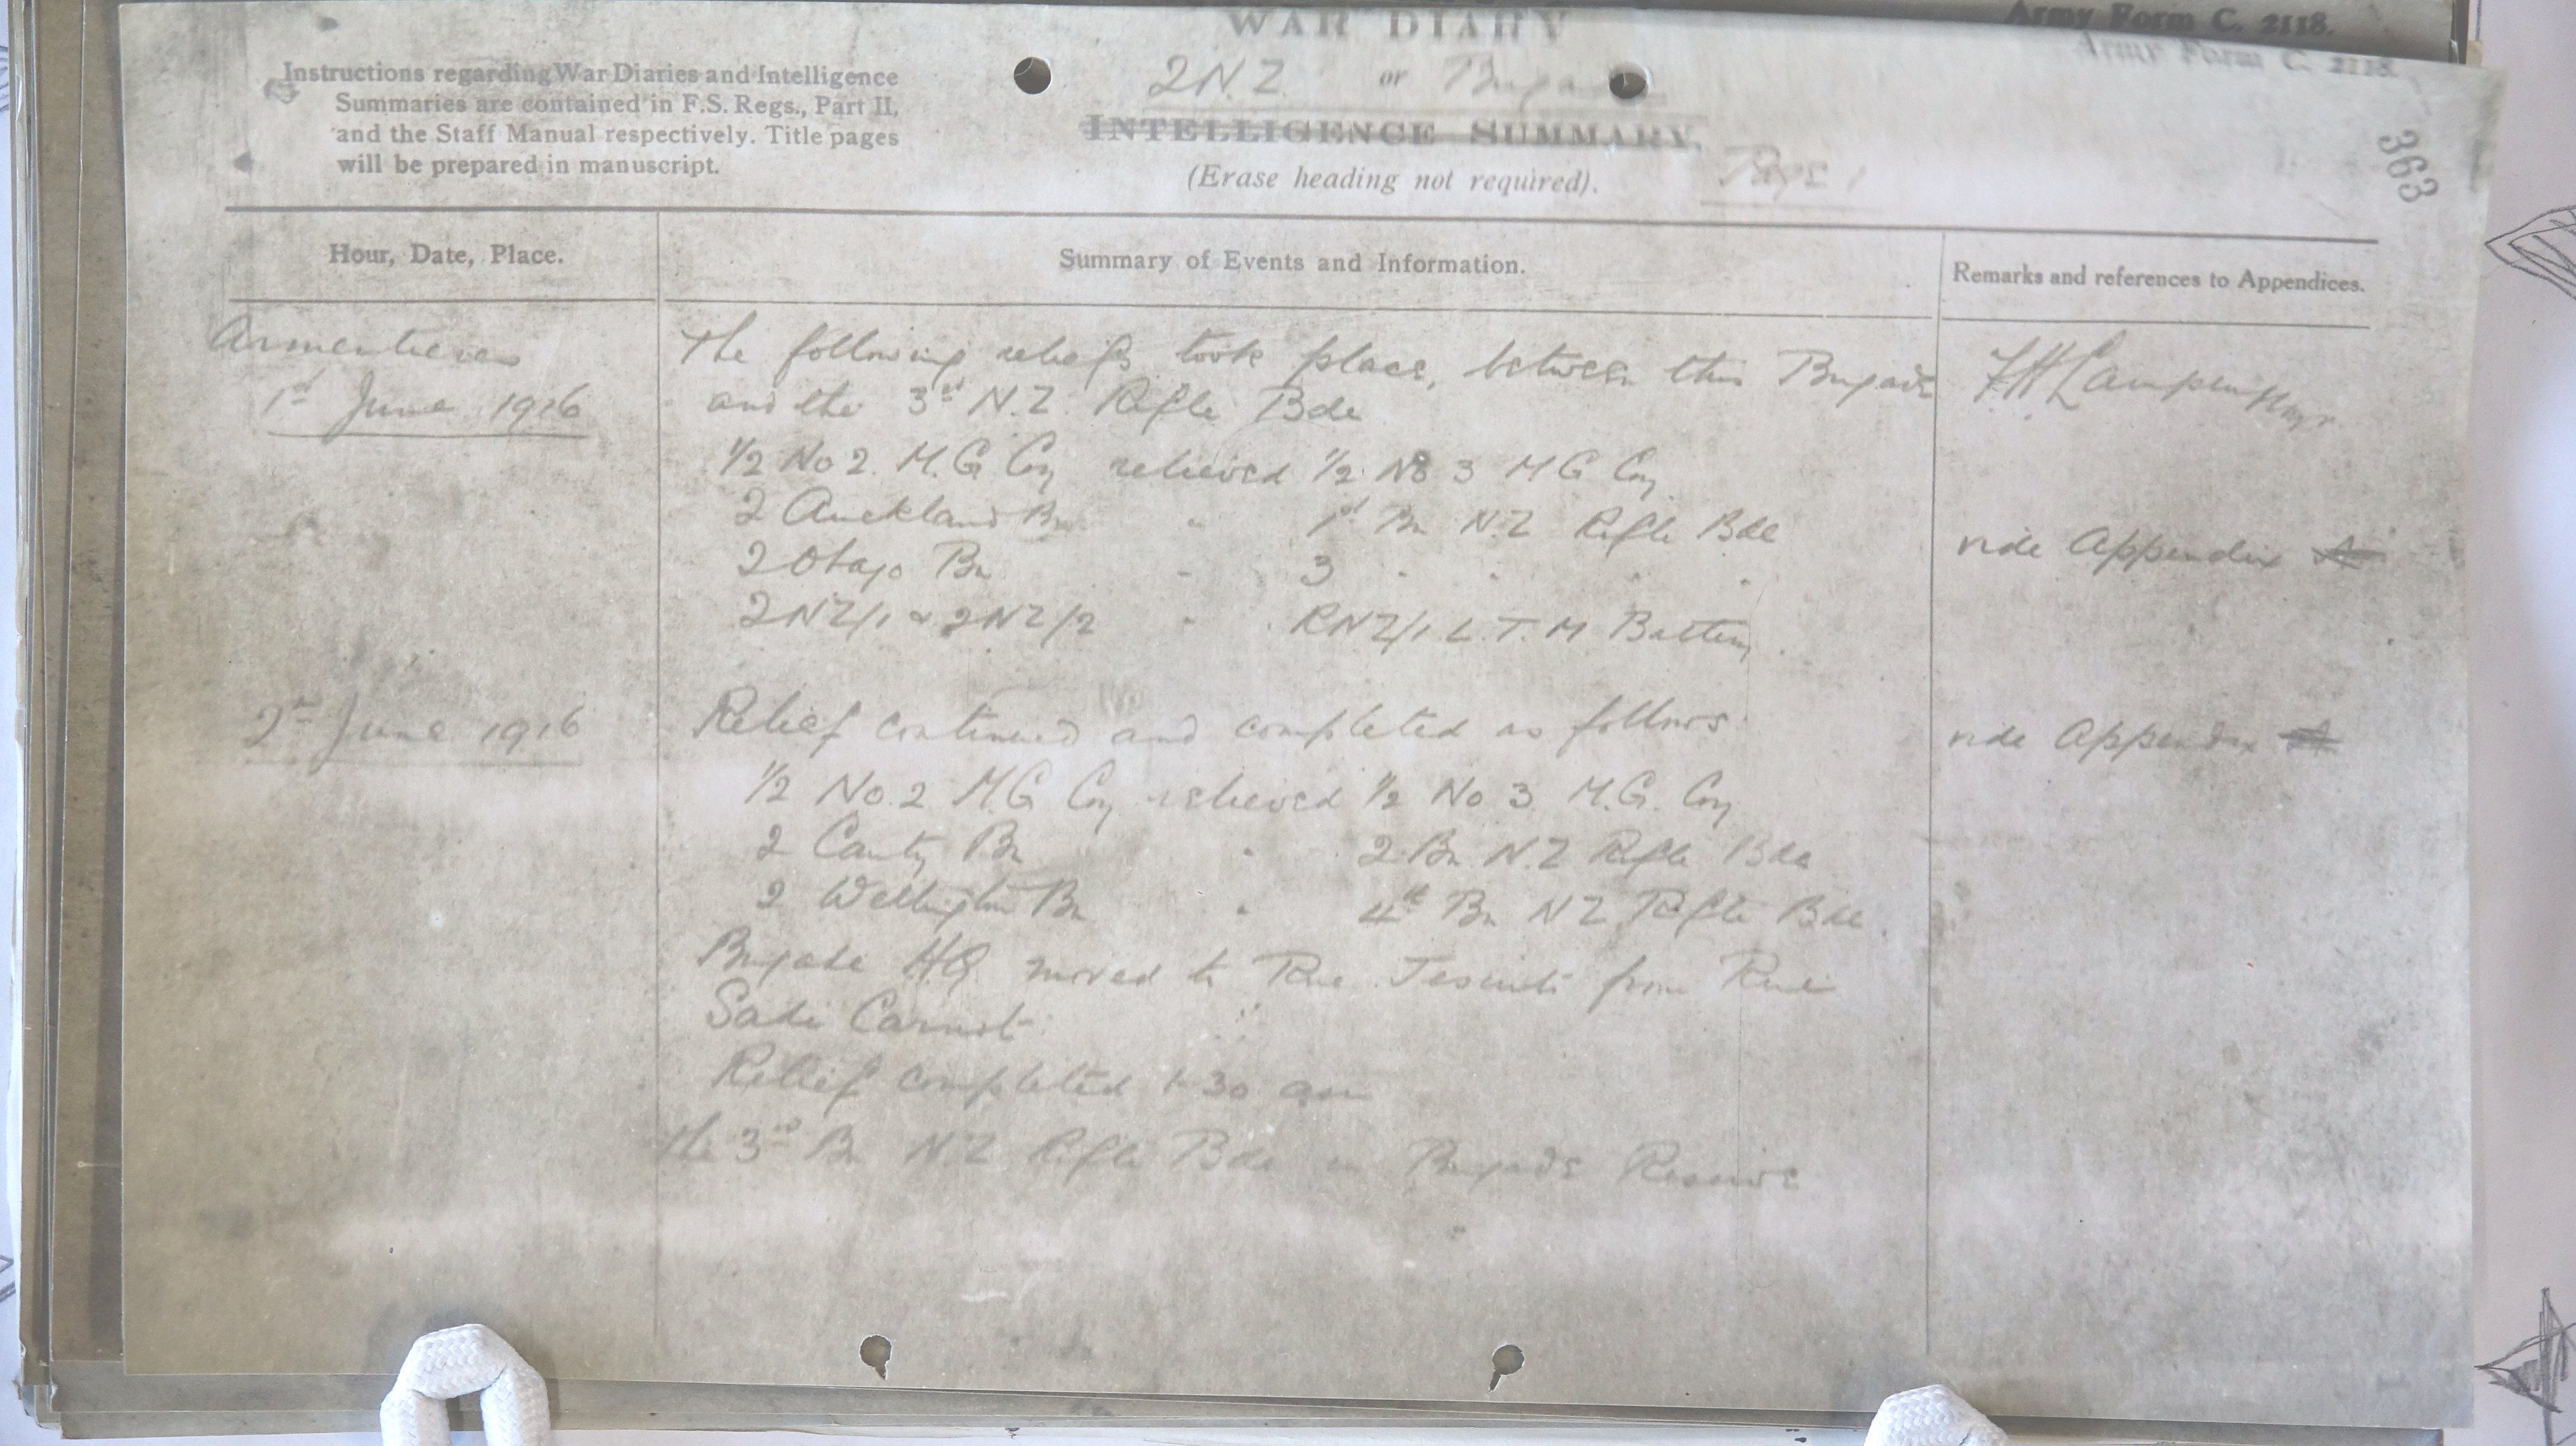 WAR DIARY
Army Form C. 2118.
Army Form C. 2118.
Instructions regarding War Diaries and Intelligence
Summaries are contained in F.S. Regs., Part II,
and the Staff Manual respectively. Title pages
will be prepared in manuscript.
2 N.Z. or Brigade
INTELLIGENCE SUMMARY.
(Erase heading not required).
Page 1
363
Hour, Date, Place.
Summary of Events and Information.
Remarks and references to Appendices.
Armentieres
1st June 1916
The following reliefs took place, between this Brigade
and the 3rd N.Z. Rifle Bde
1/2 No 2. M.G Coy relieved 1/2 No 3 M G Coy
2 Auckland Bn " 1st Bn N.Z Rifle Bde
2 Otago Bn " 3 " " " "
2NZ/1 & 2NZ/2 " RNZ/1 L.T.M Battery
vide Appendix A
2nd June 1916
Relief continued and completed as follows
vide Appendix A
1/2 No. 2 M.G Coy relieved 1/2 No 3 M.G. Coy
2 Canty Bn " 2 Bn N.Z Rifle Bde
2 Wellington Bn " 4th Bn NZ Rifle Bde.
Brigade HQ moved to Rue Jesuits from Rue
Sadi Carnot
Relief completed 1-30 am
The 3rd Bn N.Z Rifle Bde in Brigade Reserve